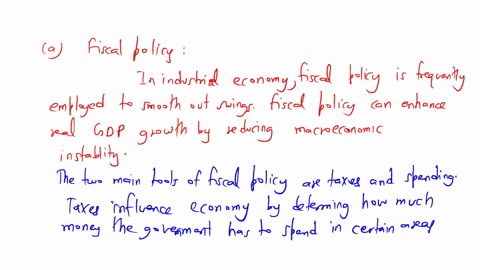 (a) Fiscal policy :
In industrial economy, fiscal policy is frequently
employed to smooth out swings. Fiscal policy can enhance
real GDP growth by reducing macroeconomic
instablity.
The two main tools of fiscal policy are taxes and spending.
Taxes influence economy by determing how much
money the goverment has to spend in certain areas